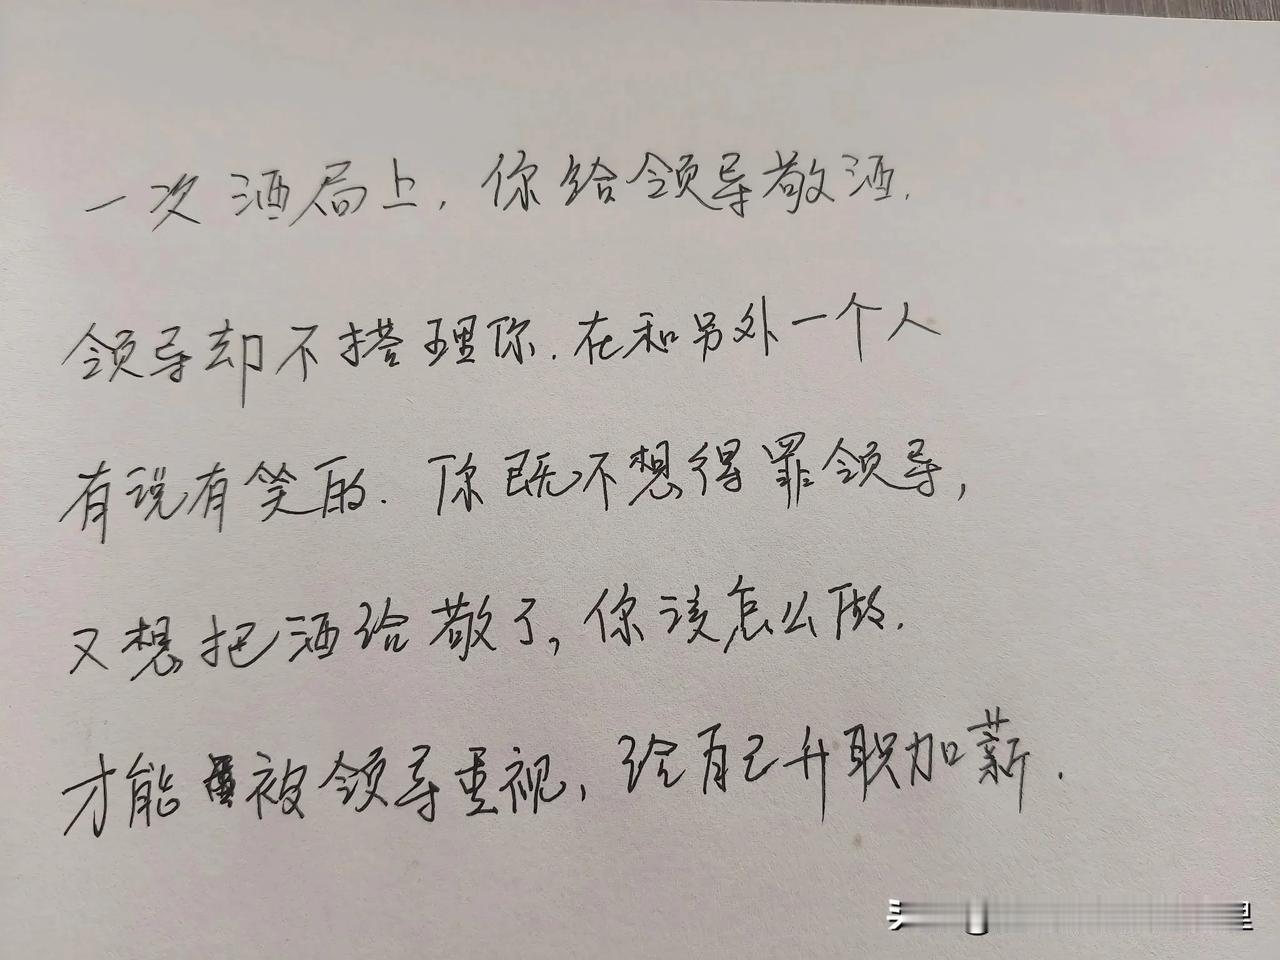 一次酒局上，你给领导敬酒.
领导却不搭理你.在和另外一个人
有说有笑的.你既不想得罪领导，
又想把酒给敬了，你该怎么做.
才能被领导重视，给自己升职加薪.